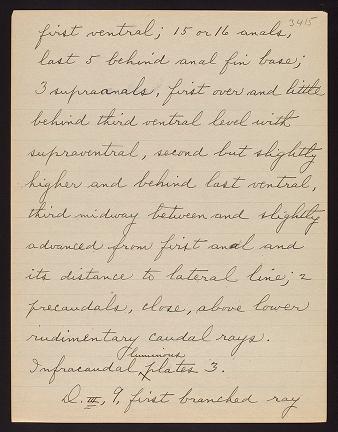 3415
first ventral; 15 or 16 anals,
last 5 behind anal fin base;
3 supraanals, first over and little
behind third ventral level with
supraventral, second but slightly
higher and behind last ventral,
third midway between and slightly
advanced from first anal and
its distance to lateral line; 2
precaudals, close, above lower
rudimentary caudal rays.
luminous
Infracaudal, plates 3.
D. III, 9, first branched ray